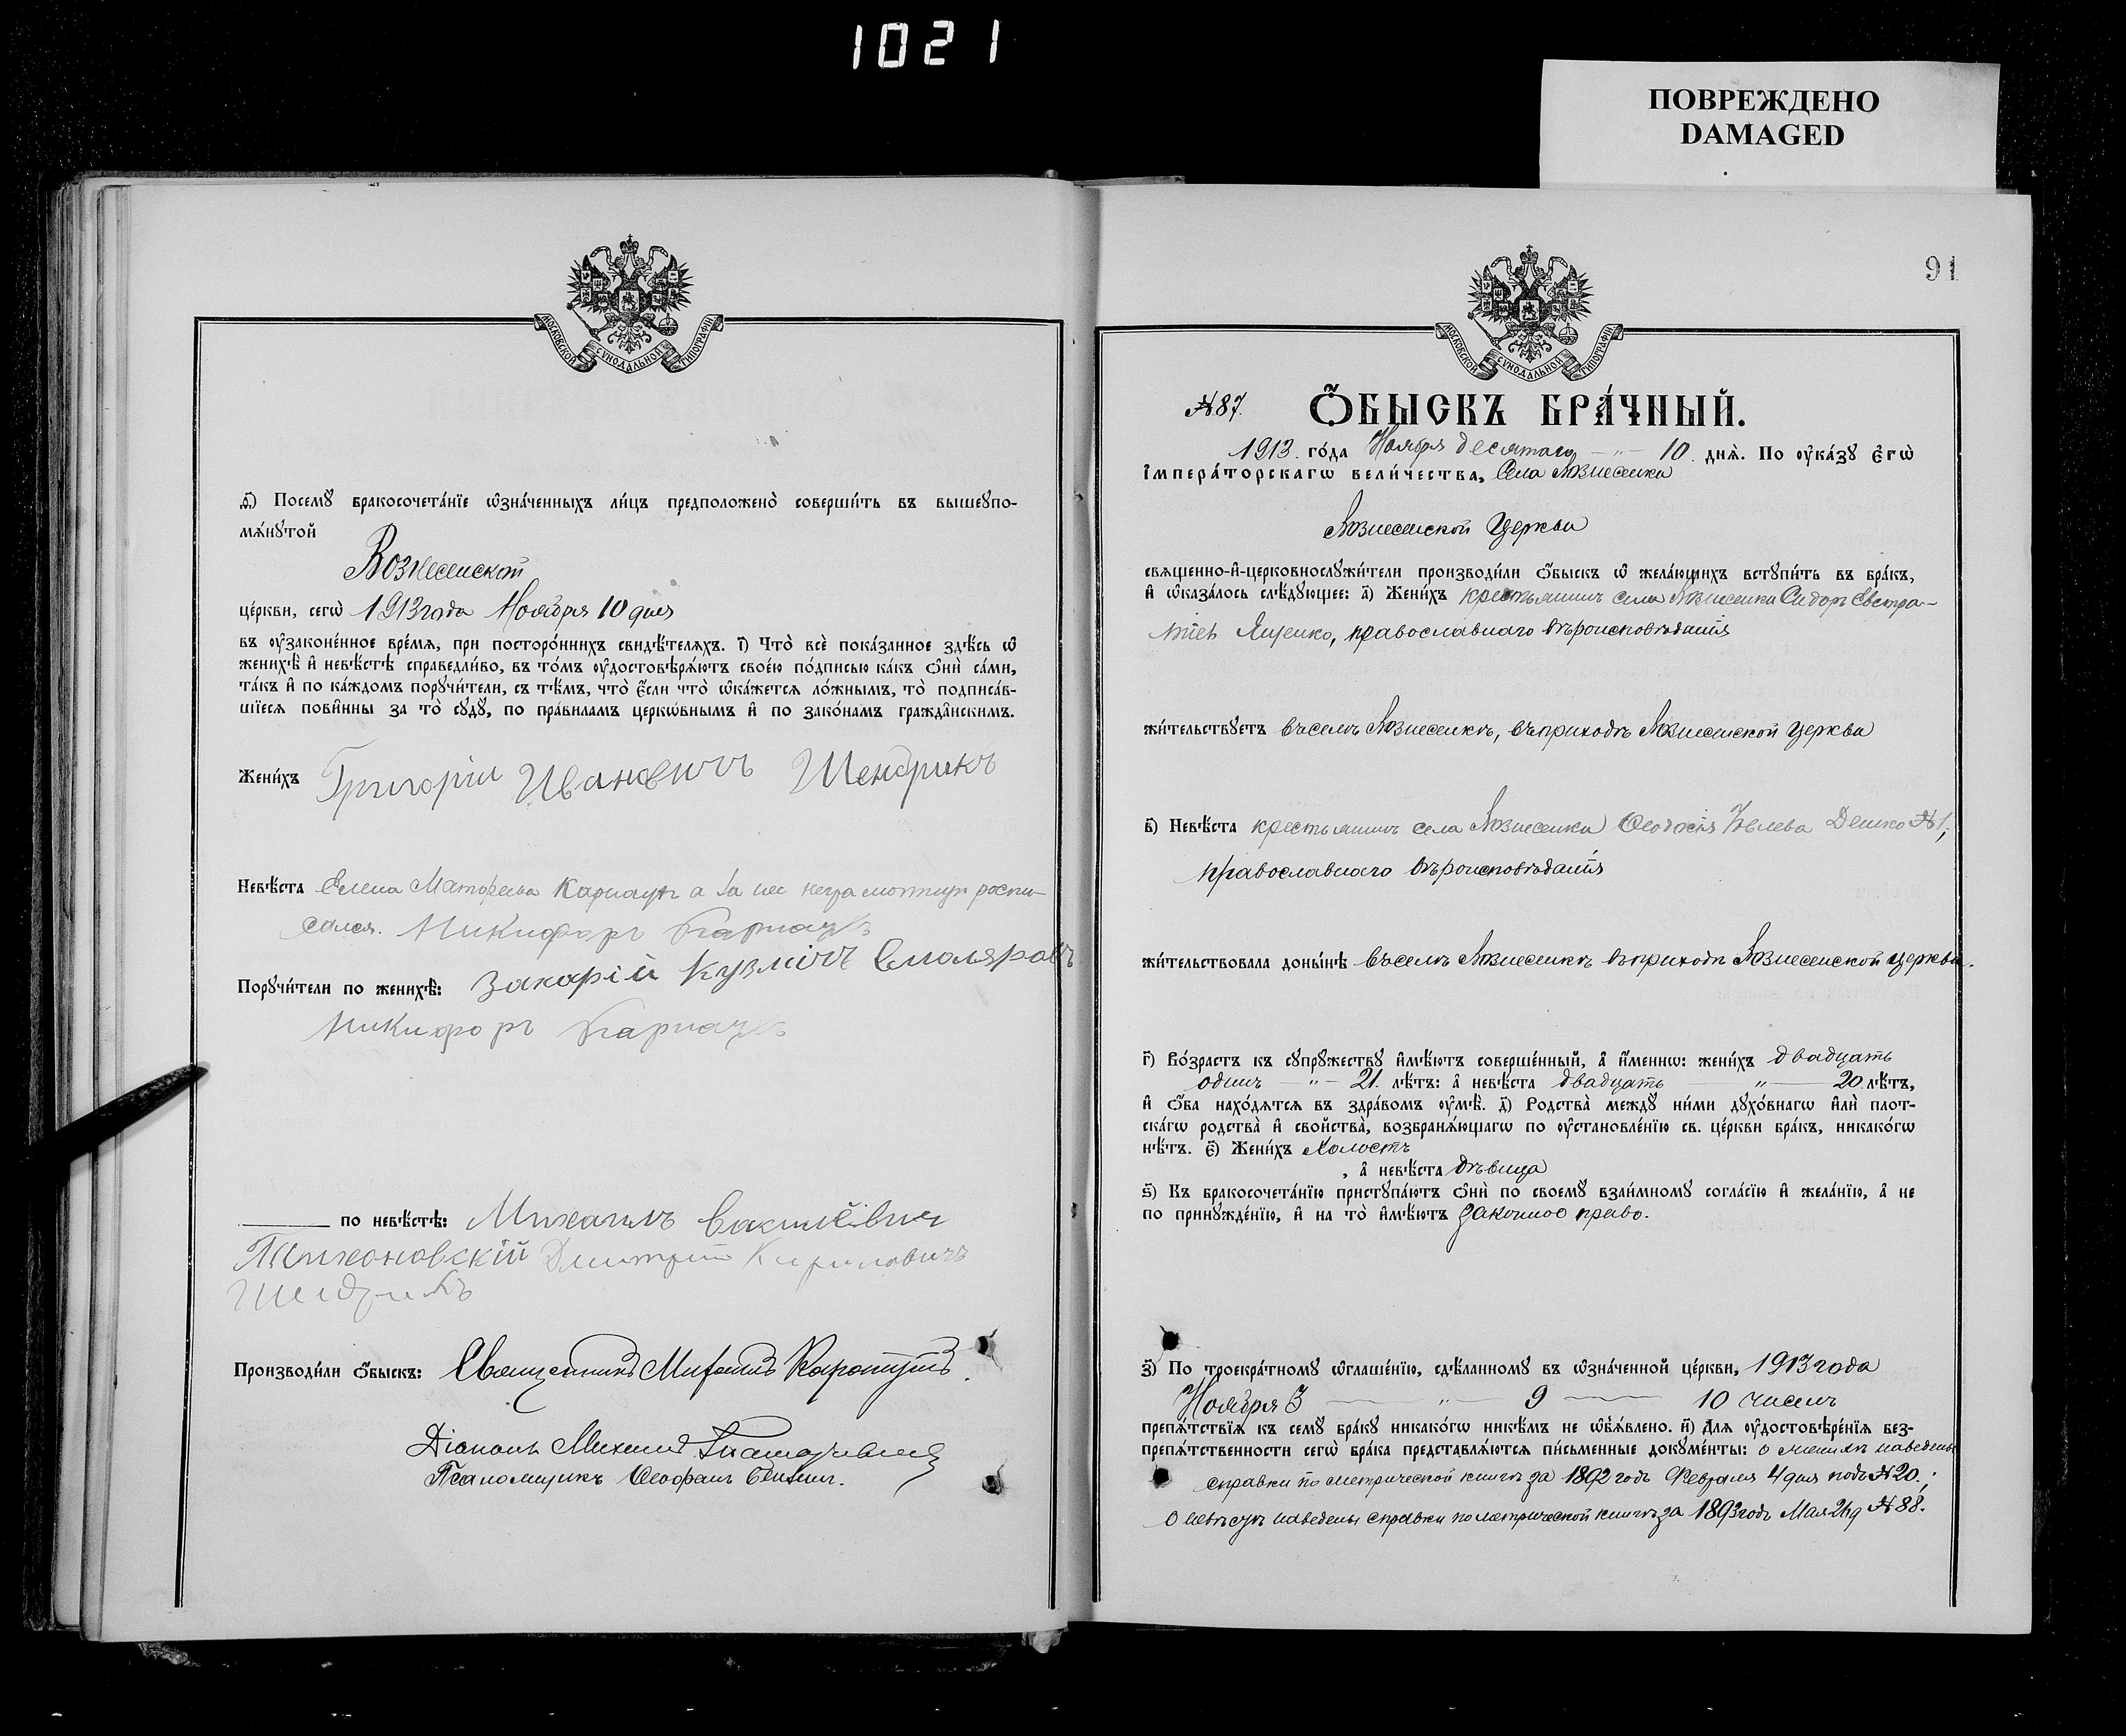 1021
ПОВРЕЖДЕНО
DAMAGED
МОСКОВСКОЙ СѴНОДАЛЬНОЙ ТИПОГРАФІИ
Ѳ҃) Посемꙋ̀ бракосочета́нїе ѡ҆зна́ченныхъ ли́цъ предположено̀ соверши́ть въ вышеꙋпо-
мѧ́нꙋтой
Вознесенской
це́ркви, сегѡ̀ 1913 года Ноября 10 дня
въ ᲂу҆законе́нное вре́мѧ, при посторо́ннихъ свидѣ́телѧхъ. І҃) Что̀ всѐ показанное здѣ́сь ѡ҆
женихѣ̀ и҆ невѣ́стѣ справедли́во, въ то́мъ ᲂу҆достовѣрѧ́ютъ свое́ю по́дписью ка́къ ѻ҆нѝ са́ми,
та́къ и҆ по ка́ждомъ порꙋчи́тели, съ тѣ́мъ, что̀ є҆́сли что̀ ѡ҆ка́жетсѧ ло́жнымъ, то̀ подписа́в-
шїесѧ пови́нны за то̀ сꙋдꙋ̀, по пра́виламъ церко́внымъ и҆ по зако́намъ гражда́нскимъ.
Жени́хъ Григорій Ивановичъ Шендрикъ
Невѣ́ста Елена Матфеева Карнаухъ а за нее неграмотную роспи-
сался. Никифоръ Карнаухъ
Порꙋчи́тели по женихѣ̀: Захарій Кузмичъ Столяровъ
Никифоръ Карнаухъ
по невѣ́стѣ: Михаилъ Василёвич
Тихоновскій Дмитрій Кириловичъ
Шендрикъ
Производи́ли ѻ҆́быскъ: Священникъ Михаилъ
Діаконъ Михаилъ
Псаломщикъ Ѳеофанъ
МОСКОВСКОЙ СѴНОДАЛЬНОЙ ТИПОГРАФІИ
91
№ 87. Ѻ҆́БЫСКЪ БРА́ЧНЫЙ.
1913. го́да Ноября десятаго — " — 10. днѧ̀. По ᲂу҆ка́зꙋ є҆гѡ̀
і҆мпера́торскагѡ вели́чества, Села Вознесенки
Вознесенской Церкви
свѧщенно-и҆-церковнослꙋжи́тели производи́ли ѻ҆́быскъ ѡ҆ жела́ющихъ встꙋпи́ть въ бра́къ,
и҆ ѡ҆каза́лось слѣ́дꙋющее: а҃) Жени́хъ крестьянинъ села Вознесенки Сидоръ Евстра-
тіевъ Ященко, православнаго вѣроисповѣданія
жи́тельствꙋетъ въ селѣ Вознесенкѣ, въ приходѣ Вознесенской церкви
в҃) Невѣ́ста крестьянинъ села Вознесенки Ѳеодосія Іовлева Дешко № 1,
православнаго вѣроисповѣданія
жи́тельствовала доны́нѣ въ селѣ Вознесенкѣ въ приходѣ Вознесенской церкви.
г҃) Во́зрастъ къ сꙋпрꙋ́жествꙋ и҆мѣ́ютъ соверше́нный, а҆ и҆́меннѡ: жени́хъ двадцать
одинъ — " — 21. лѣ́тъ: а҆ невѣ́ста двадцать — " — 20. лѣ́тъ,
и҆ ѻ҆́ба нахо́дѧтсѧ въ здра́вомъ ᲂу҆мѣ̀. д҃) Родства̀ междꙋ̀ ни́ми дꙋхо́внагѡ и҆лѝ плот-
ска́гѡ родства̀ и҆ свойства̀, возбранѧ́ющагѡ по ᲂу҆становле́нїю св. це́ркви бра́къ, никако́гѡ
нѣ́тъ. є҃) Жени́хъ холостъ
, а҆ невѣ́ста дѣвица
ѕ҃) Къ бракосочета́нїю пристꙋпа́ютъ ѻ҆нѝ по своемꙋ̀ взаи́мномꙋ согла́сїю и҆ жела́нїю, а҆ не
по принꙋжде́нїю, и҆ на то̀ и҆мѣ́ютъ законное право.
з҃) По троекра́тномꙋ ѡ҆глаше́нїю, сдѣ́ланномꙋ въ ѡ҆зна́ченной це́ркви, 1913 года
Ноября 3 — " — 9 — 10 чиселъ
препѧ́тствїѧ къ семꙋ̀ бра́кꙋ никако́гѡ никѣ́мъ не ѡ҆б̾ѧ́влено. и҃) Длѧ ᲂу҆достовѣре́нїѧ без-
препѧ́тственности сегѡ̀ бра́ка представлѧ́ютсѧ пи́сьменные докꙋме́нты: о женихѣ наведены
справки по метрической книгѣ за 1892 годъ Февраля 4 дня подъ № 20;
О невѣстѣ наведены справки по метрической книгѣ за 1893 годъ Мая 24 д № 88.